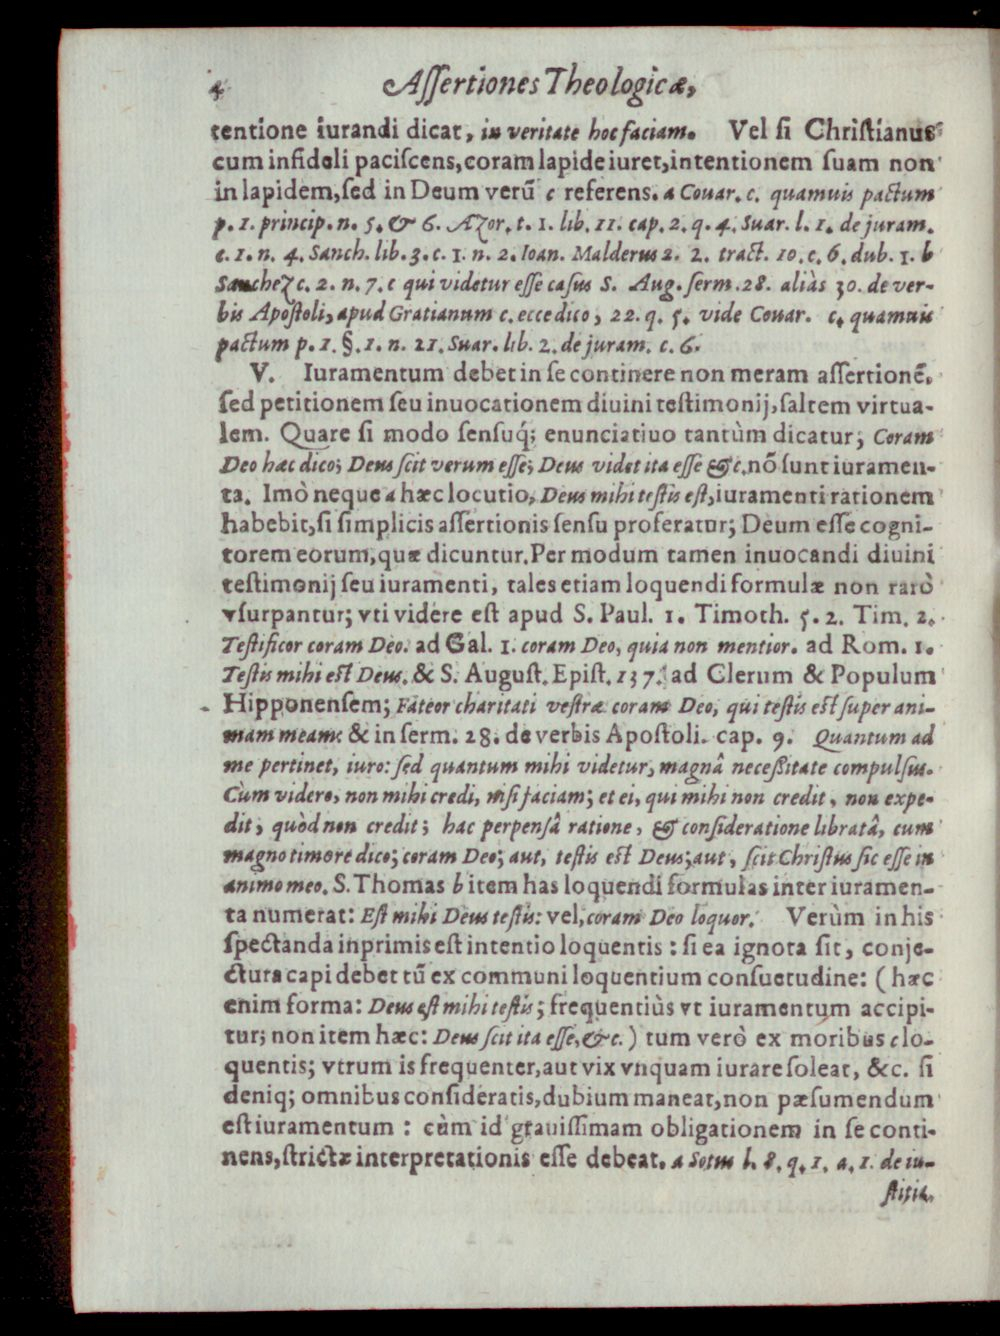 4 Assertiones Theologicæ,
tentione iurandi dicat, in veritate hoc faciam. Vel si Christianus
cum infideli paciscens, coram lapide iuret, intentionem suam non
in lapidem, sed in Deum verũ c referens. a Couar. c. quamuis pactum
p. 1. princip. n. 5. & 6. Azor. t. 1. lib. 11. cap. 2. q. 4. Suar. l. 1. de juram.
c. 1. n. 4. Sanch. lib. 3. c. 1. n. 2. Ioan. Malderus 2. 2. tract. 10. c. 6. dub. 1. b
Sanchez c. 2. n. 7. c qui videtur esse casus S. Aug. serm. 28. aliàs 30. de ver-
bis Apostoli, apud Gratianum c. ecce dico, 22. q. 5. vide Couar. c. quamuis
pactum p. 1. §. 1. n. 21. Suar. lib. 2. de juram. c. 6.
V. Iuramentum debet in se continere non meram assertionẽ,
sed petitionem seu inuocationem diuini testimonij, saltem virtua-
lem. Quare si modo sensuq́; enunciatiuo tantùm dicatur; Coram
Deo hæc dico; Deus scit verum esse; Deus videt ita esse &c. nõ sunt iuramen-
ta. Imò neque a hæc locutio, Deus mihi testis est, iuramenti rationem
habebit, si simplicis assertionis sensu proferatur; Deum esse cogni-
torem eorum, quæ dicuntur. Per modum tamen inuocandi diuini
testimonij seu iuramenti, tales etiam loquendi formulæ non rarò
vsurpantur; vti videre est apud S. Paul. 1. Timoth. 5. 2. Tim. 2.
Testificor coram Deo. ad Gal. 1. coram Deo, quia non mentior. ad Rom. 1.
Testis mihi est Deus. & S. August. Epist. 137. ad Clerum & Populum
Hipponensem; Fateor charitati vestræ coram Deo, qui testis est super ani-
mam meam: & in serm. 28. de verbis Apostoli. cap. 9. Quantum ad
me pertinet, iuro: sed quantum mihi videtur, magnâ necessitate compulsus.
Cùm videro, non mihi credi, nisi faciam; et ei, qui mihi non credit, non expe-
dit, quòd non credit; hac perpensâ ratione, & consideratione libratâ, cum
magno timore dico; coram Deo; aut, testis est Deus; aut, scit Christus sic esse in
animo meo. S. Thomas b item has loquendi formulas inter iuramen-
ta numerat: Est mihi Deus testis: vel, coram Deo loquor. Verùm in his
spectanda inprimis est intentio loquentis: si ea ignota sit, conje-
ctura capi debet tũ ex communi loquentium consuetudine: (hæc
enim forma: Deus est mihi testis; frequentiùs vt iuramentum accipi-
tur; non item hæc: Deus scit ita esse, &c.) tum verò ex moribus clo-
quentis; vtrum is frequenter, aut vix vnquam iurare soleat, &c. si
deniq; omnibus consideratis, dubium maneat, non pæsumendum
est iuramentum: cùm id grauissimam obligationem in se conti-
nens, strictæ interpretationis esse debeat. a Sotus l. 8. q. 1. a. 1. de iu-
stitia.